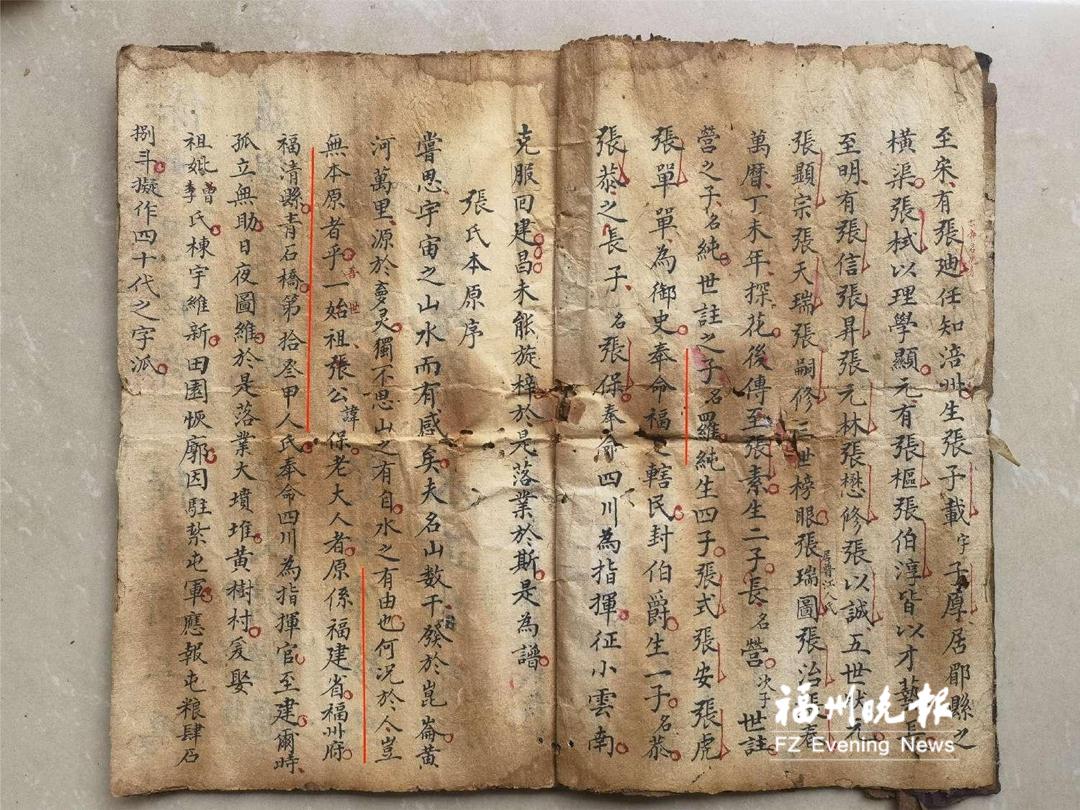 至宋有張廸任知涪州生張子載字子厚居郿縣之
横渠張栻以理學顯元有張樞張伯淳皆以才藝
至明有張信張昇張元林張懋修張以誠五世狀元
張顯宗張天瑞張嗣修三世榜眼張瑞圖張治張春
萬曆丁未年探花後傳至張素生二子長名營次子世註
營之子名純世註之子名羅純生四子張式張安張虎
張單單為御史奉命福轄民封伯爵生一子名恭
張恭之長子名張保奉命四川為指揮征小雲南
克服回建昌未能旋梓於是落業於斯是為譜
張氏本原序
嘗思宇宙之山水而有感矣夫名山数千發於崑崙黄
河萬里源於獨不思山之有自水之有由也何況於人豈
無本原者乎吾一世始祖張公諱保老大人者原係福建省福州府
福清縣青石橋第拾叁甲人氏奉命四川為指揮官至建爾時
孤立無助日夜圖維於是落業大墳堆黄樹村爰娶
祖妣曾李氏棟宇維新田園恢廓因駐紮屯軍應報屯粮肆石
捌斗擬作四十代之字派
福州晚報
FZ Evening News